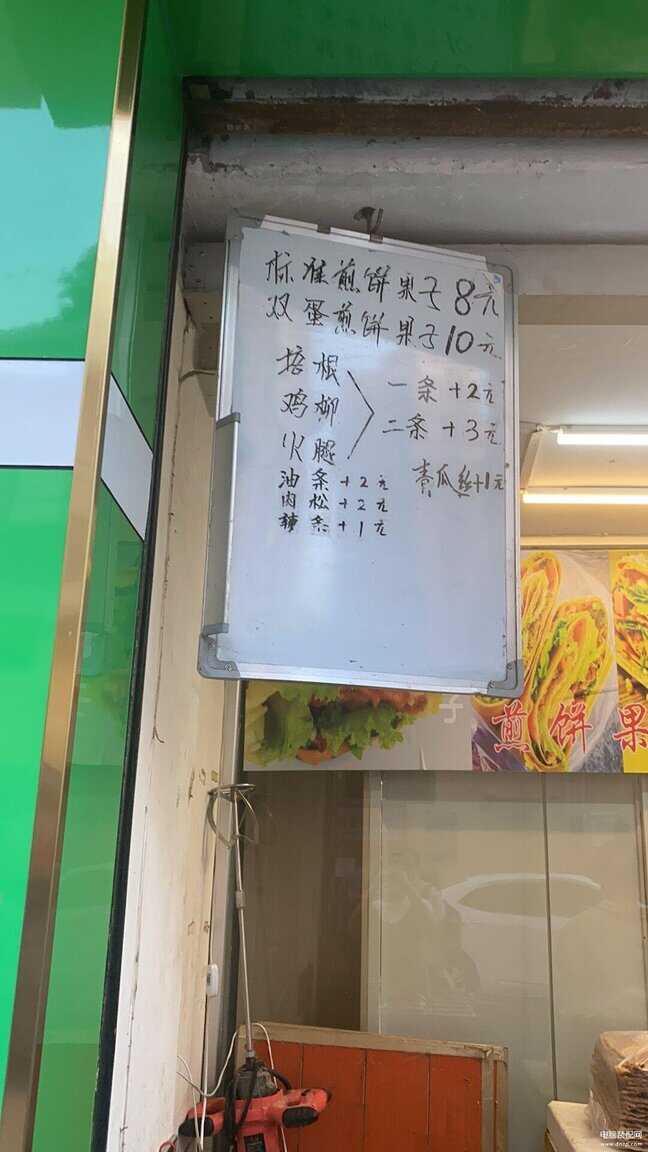 标准煎饼果子8元
双蛋煎饼果子10元
培根
鸡柳
火腿
一条+2元
二条+3元
油条+2元
肉松+2元
辣条+1元
青瓜丝+1元
子
煎饼果
电脑装配网
www.dnzp.com